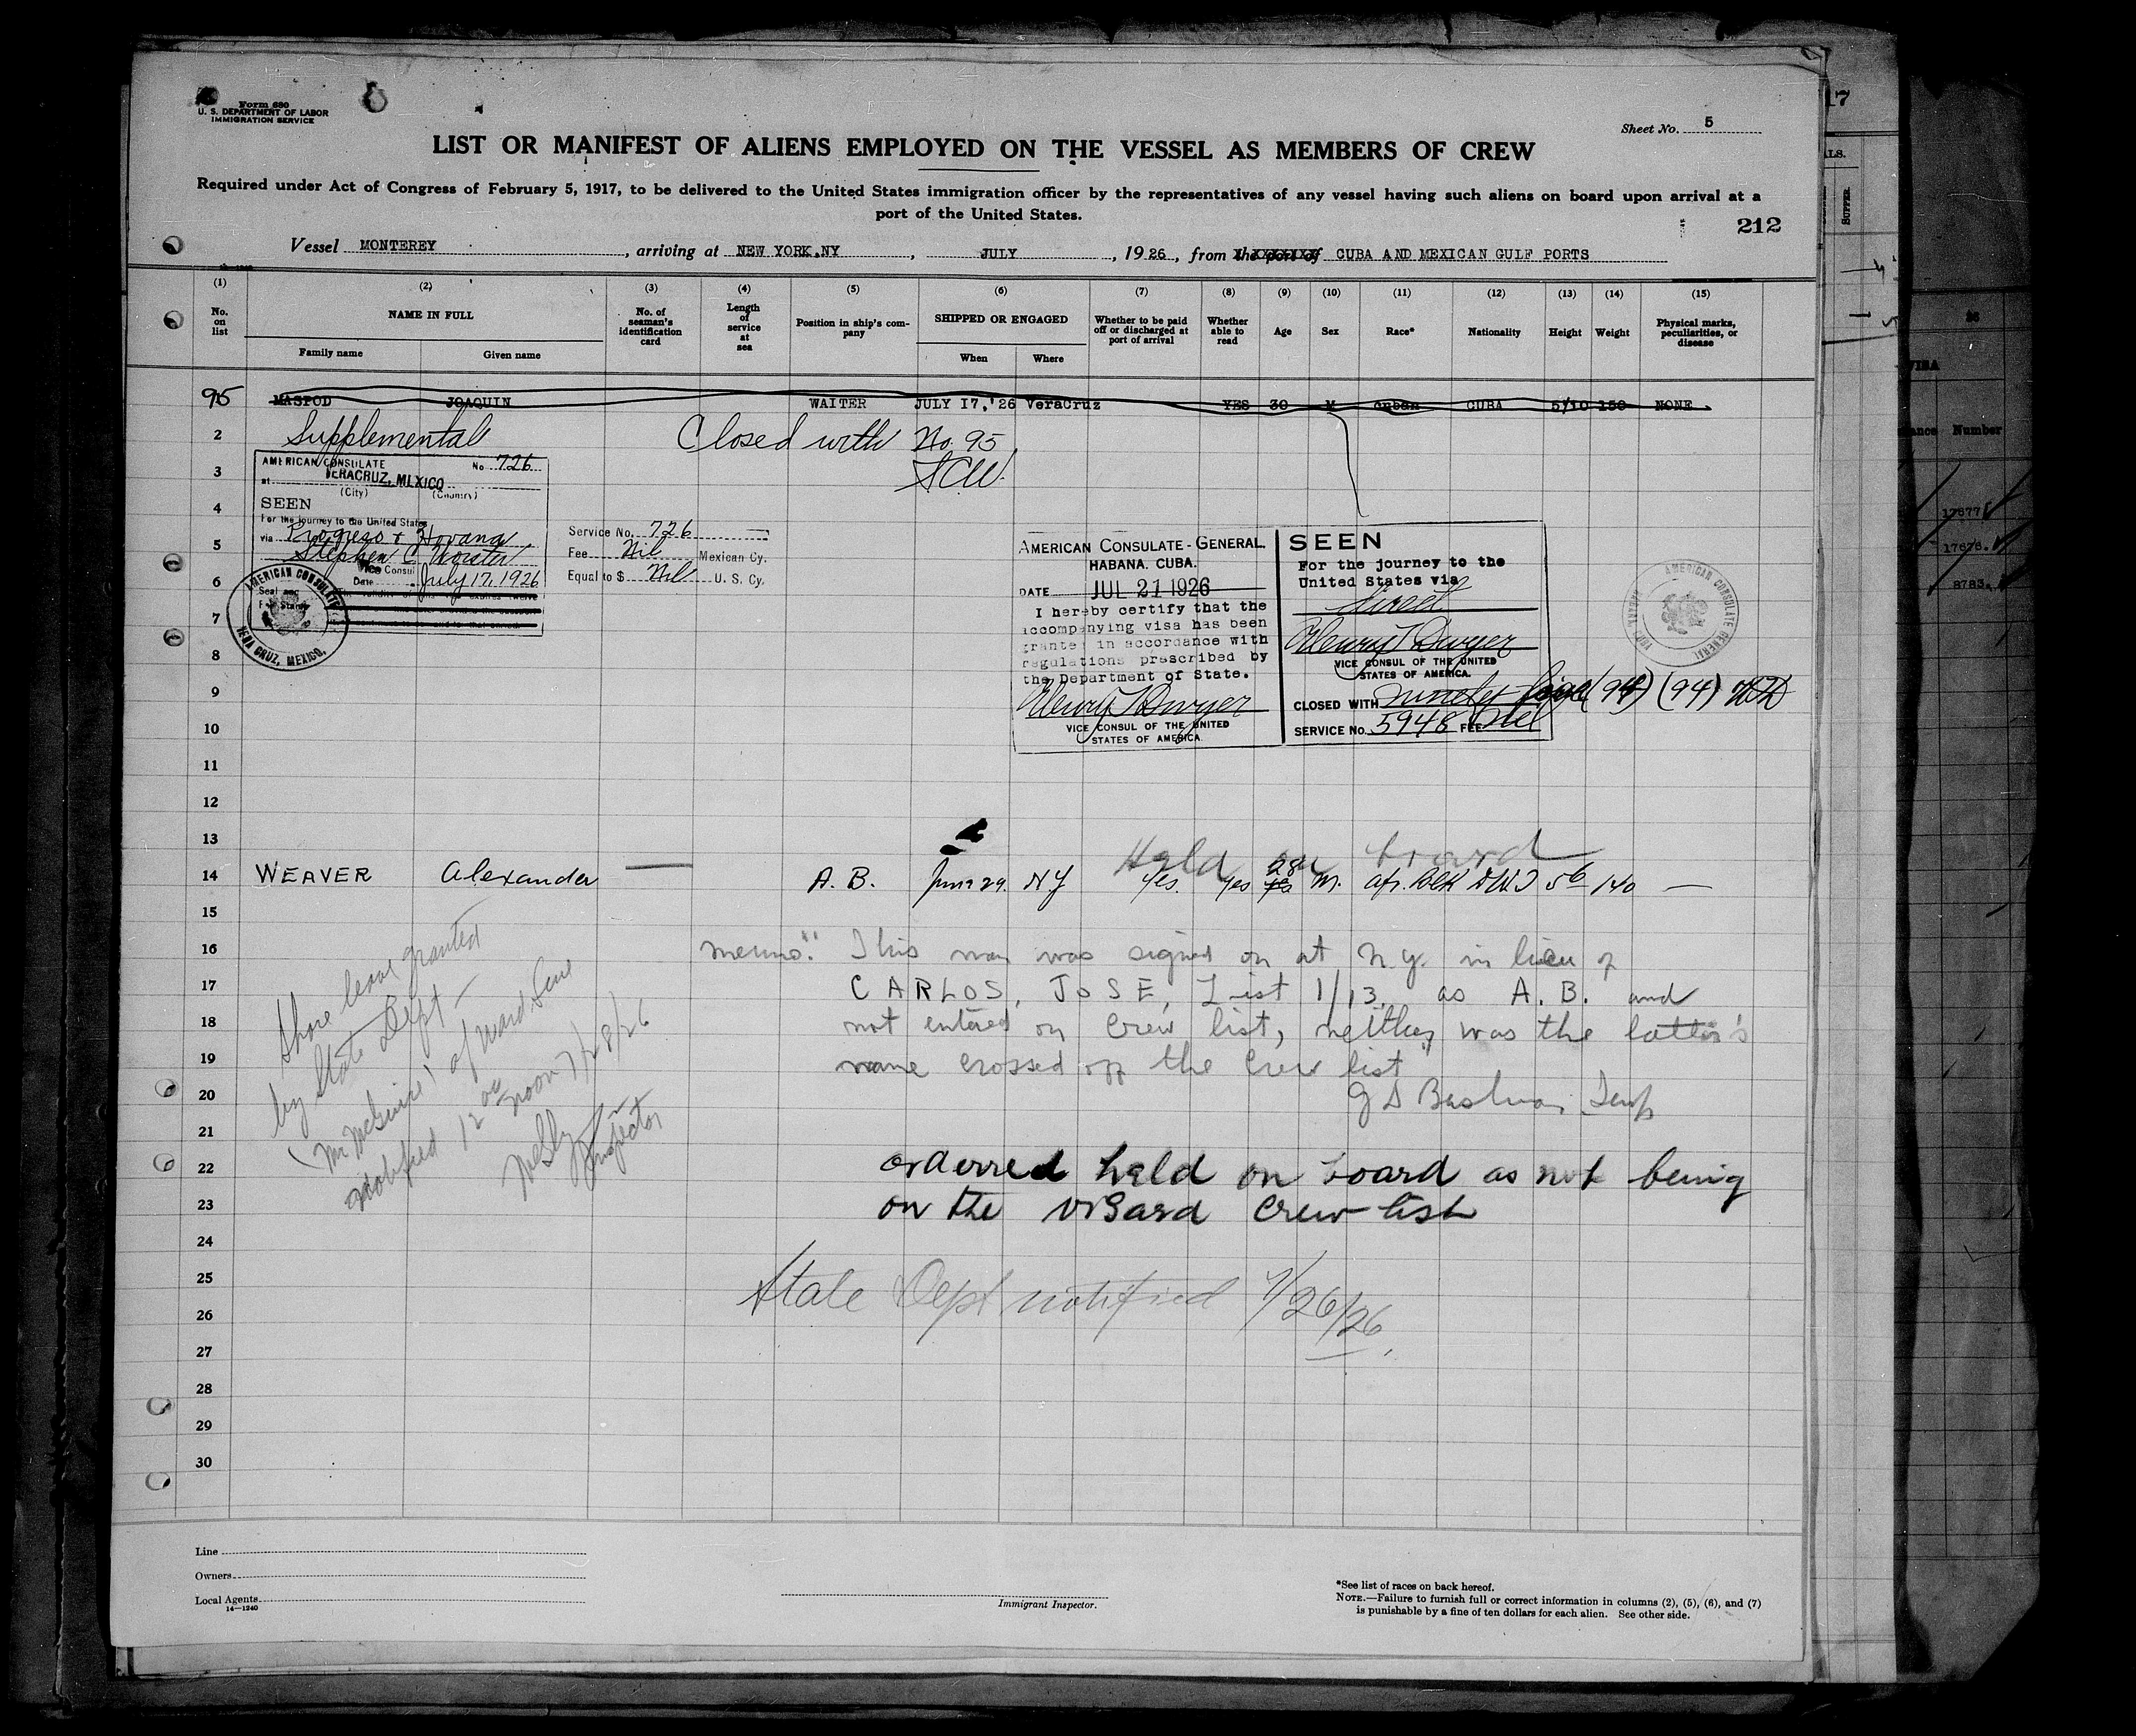 Form 680
U. S. DEPARTMENT OF LABOR
IMMIGRATION SERVICE
Sheet No. 5
LIST OR MANIFEST OF ALIENS EMPLOYED ON THE VESSEL AS MEMBERS OF CREW
Required under Act of Congress of February 5, 1917, to be delivered to the United States immigration officer by the representatives of any vessel having such aliens on board upon arrival at a
port of the United States.
212
Vessel MONTEREY, arriving at NEW YORK,NY, JULY, 1926, from the port of CUBA AND MEXICAN GULF PORTS
(1) (2) (3) (4) (5) (6) (7) (8) (9) (10) (11) (12) (13) (14) (15)
No. on list
NAME IN FULL
Family name Given name
No. of seaman's identification card
Length of service at sea
Position in ship's company
SHIPPED OR ENGAGED
When Where
Whether to be paid off or discharged at port of arrival
Whether able to read
Age
Sex
Race*
Nationality
Height
Weight
Physical marks, peculiarities, or disease
95 MASPOD JOAQUIN WAITER JULY 17,'26 VeraCruz YES 30 M Cuban CUBA 5/10 150 NONE
2 Supplemental Closed with No. 95
3
AMERICAN CONSULATE No. 726
at VERACRUZ, MEXICO
(City) (Country)
SEEN
For the journey to the United States
via Progreso & Havana
Stephen C. Worster
Vice Consul
Date July 17, 1926
AMERICAN CONSULATE VERA CRUZ, MEXICO.
Service No. 726
Fee Nil Mexican Cy.
Equal to $ Nil U. S. Cy.
AMERICAN CONSULATE-GENERAL.
HABANA. CUBA.
DATE JUL 21 1926
I hereby certify that the
accompanying visa has been
granted in accordance with
regulations prescribed by
the Department of State.
Henry T Dwyer
VICE CONSUL OF THE UNITED
STATES OF AMERICA.
SEEN
For the journey to the
United States via
direct
Henry T Dwyer
VICE CONSUL OF THE UNITED
STATES OF AMERICA.
CLOSED WITH ninety four (94) (94) HTD
SERVICE No. 5948 FEE Nil
AMERICAN CONSULATE GENERAL
4
5
6
7
8
9
10
11
12
13
Held on board
14 WEAVER Alexander — A. B. June 29. NY Yes. yes yes 28 M. afr. Blk DWI 5 6 140 —
15
16 memo: "This man was signed on at N.Y. in lieu of
17 CARLOS, JOSE, List 1/13, as A. B. and
18 not entered on crew list, neither was the latter's
19 name crossed off the Crew list"
20
21
22 orderred held on board as not being
23 on the visaed Crew list
24
25 State Dept notified 7/26/26
26
27
28
29
30
Shore leave granted
by State Dept —
(Mr McGuire) of Ward Line
notified 12 00 noon 7/28/26
Inspector
Line
Owners
Local Agents
14—1240
Immigrant Inspector.
*See list of races on back hereof.
NOTE.—Failure to furnish full or correct information in columns (2), (5), (6), and (7)
is punishable by a fine of ten dollars for each alien. See other side.
17
SUPPER
Number
17677
17678.
8783.